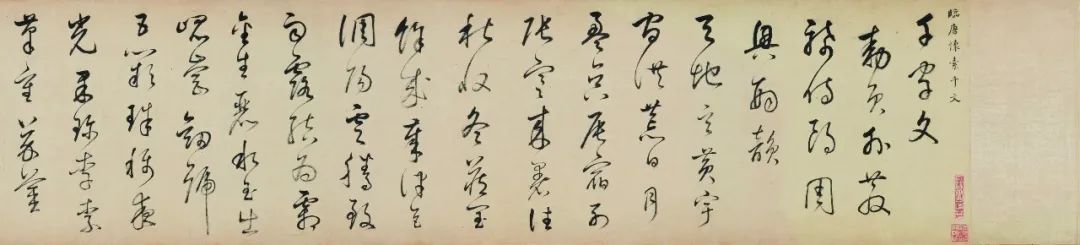 臨唐懷素千文
千字文
勅員外散
騎侍郎周
興嗣韻
天地玄黃宇
宙洪荒日月
盈昃辰宿列
張寒來暑往
秋收冬藏閏
餘成歲律呂
調陽雲騰致
雨露結為霜
金生麗水玉出
崐崗劒號
巨闕珠稱夜
光果珍李柰
菜重芥薑